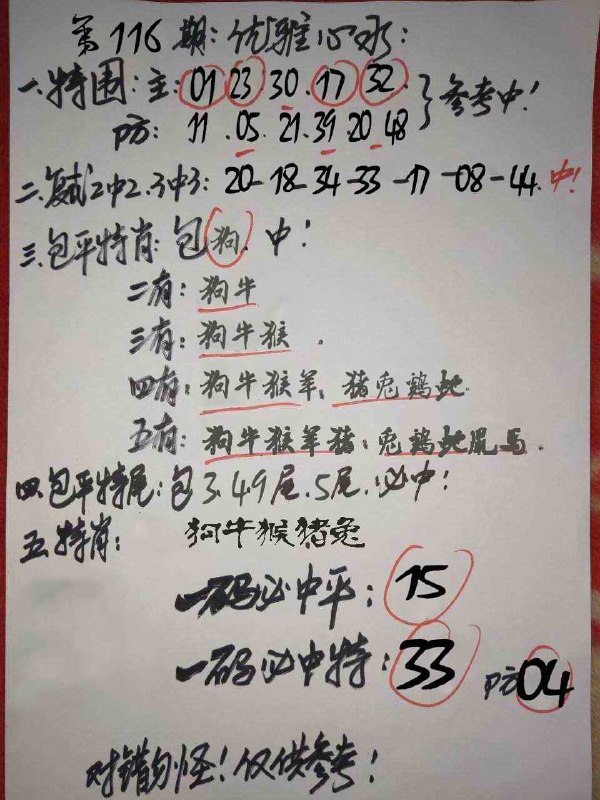 第116期:优雅心水:
一.特围:主:01 23.30.17 32. 参考中!
防: 11.05.21.39.20.48
二.复试2中2.3中3: 20-18-34-33-17-08-44.中!
三.包平特肖:包狗.中!
二有:狗牛
三有:狗牛猴.
四有:狗牛猴羊、猪兔鷄蛇.
五有:狗牛猴羊猪;兔鷄蛇鼠马.
四.包平特尾:包3.49尾.5尾.必中!
五.特肖: 狗牛猴猪兔
一码必中平: 15
一码必中特: 33 防04
对错勿怪!仅供参考!